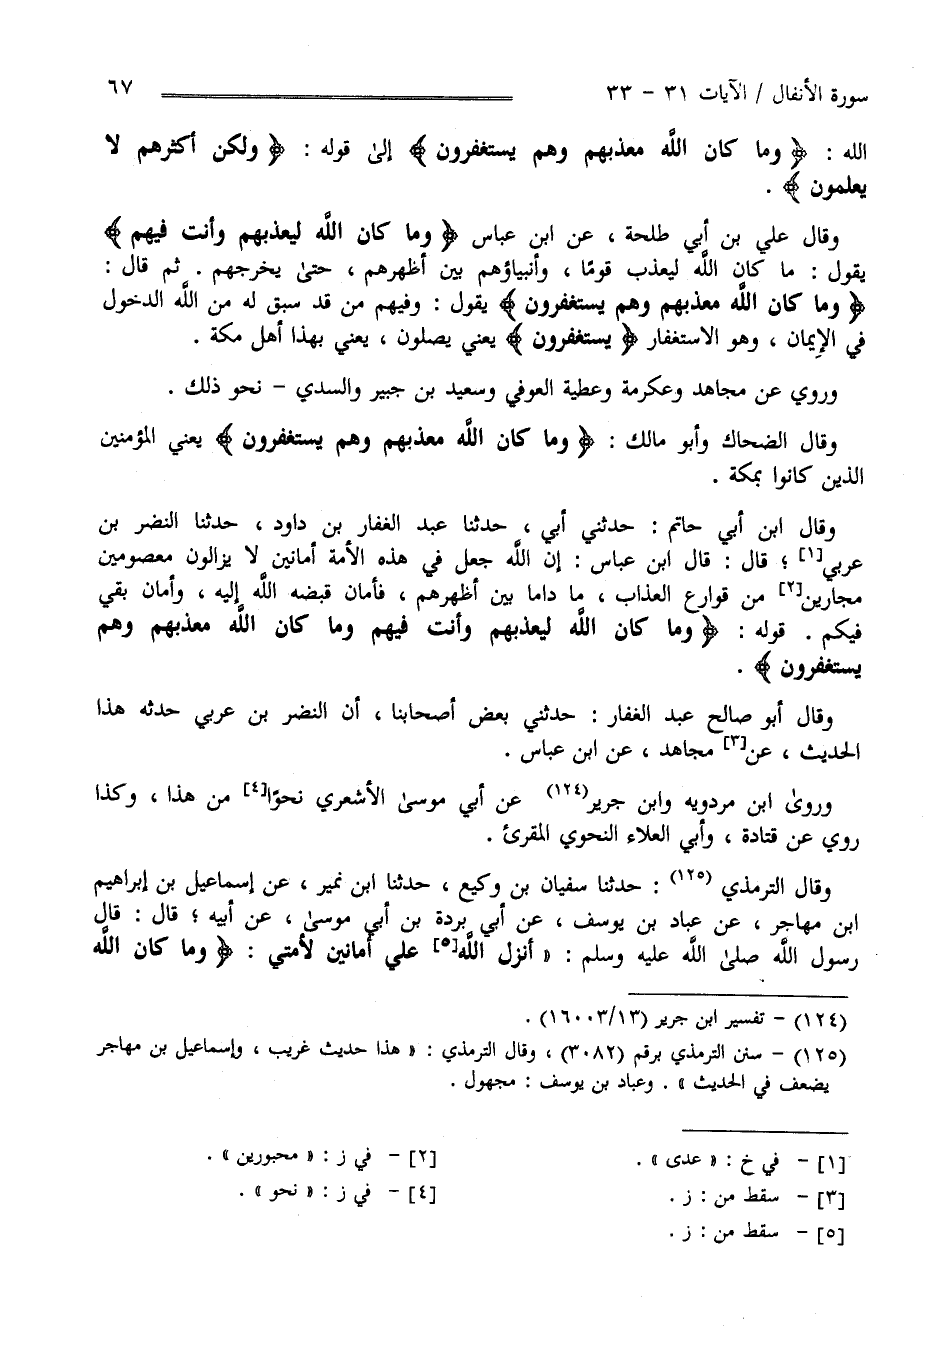 سورة الأنفال / الآيات ٣١ - ٣٣ ٦٧
الله : ﴿ وما كان الله معذبهم وهم يستغفرون ﴾ إلىٰ قوله : ﴿ ولكن أكثرهم لا
يعلمون ﴾ .
وقال علي بن أبي طلحة ، عن ابن عباس ﴿ وما كان الله ليعذبهم وأنت فيهم ﴾
يقول : ما كان الله ليعذب قومًا ، وأنبياؤهم بين أظهرهم ، حتىٰ يخرجهم . ثم قال :
﴿ وما كان الله معذبهم وهم يستغفرون ﴾ يقول : وفيهم من قد سبق له من الله الدخول
في الإيمان ، وهو الاستغفار ﴿ يستغفرون ﴾ يعني يصلون ، يعني بهذا أهل مكة .
وروي عن مجاهد وعكرمة وعطية العوفي وسعيد بن جبير والسدي - نحو ذلك .
وقال الضحاك وأبو مالك : ﴿ وما كان الله معذبهم وهم يستغفرون ﴾ يعني المؤمنين
الذين كانوا بمكة .
وقال ابن أبي حاتم : حدثني أبي ، حدثنا عبد الغفار بن داود ، حدثنا النضر بن
عربي[١] ؛ قال : قال ابن عباس : إن الله جعل في هذه الأمة أمانين لا يزالون معصومين
مجارين[٢] من قوارع العذاب ، ما داما بين أظهرهم ، فأمان قبضه الله إليه ، وأمان بقي
فيكم . قوله : ﴿ وما كان الله ليعذبهم وأنت فيهم وما كان الله معذبهم وهم
يستغفرون ﴾ .
وقال أبو صالح عبد الغفار : حدثني بعض أصحابنا ، أن النضر بن عربي حدثه هذا
الحديث ، عن[٣] مجاهد ، عن ابن عباس .
وروىٰ ابن مردويه وابن جرير(١٢٤) عن أبي موسىٰ الأشعري نحوًا[٤] من هذا ، وكذا
روي عن قتادة ، وأبي العلاء النحوي المقرئ .
وقال الترمذي (١٢٥) : حدثنا سفيان بن وكيع ، حدثنا ابن نمير ، عن إسماعيل بن إبراهيم
ابن مهاجر ، عن عباد بن يوسف ، عن أبي بردة بن أبي موسىٰ ، عن أبيه ؛ قال : قال
رسول الله صلىٰ الله عليه وسلم : « أنزل الله[٥] علي أمانين لأمتي : ﴿ وما كان الله
(١٢٤) - تفسير ابن جرير (١٦٠٠٣/١٣) .
(١٢٥) - سنن الترمذي برقم (٣٠٨٢) ، وقال الترمذي : « هذا حديث غريب ، وإسماعيل بن مهاجر
يضعف في الحديث » . وعباد بن يوسف : مجهول .
[١] - في خ : « عدى » . [٢] - في ز : « محبورين » .
[٣] - سقط من : ز . [٤] - في ز : « نحو » .
[٥] - سقط من : ز .